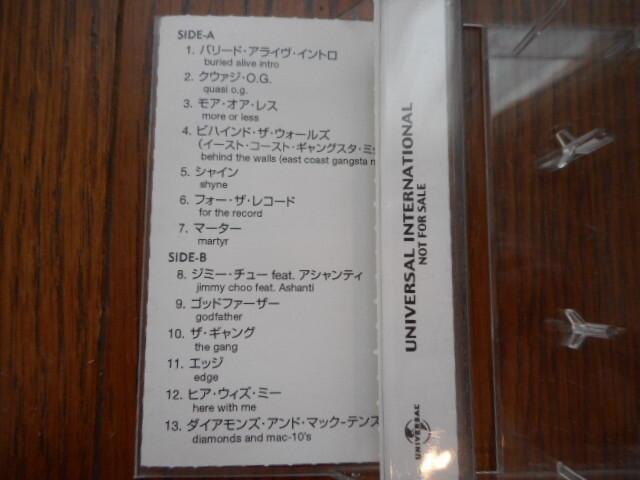 SIDE-A
1. バリード・アライヴ・イントロ
buried alive intro
2. クウァジ・O.G.
quasi o.g.
3. モア・オア・レス
more or less
4. ビハインド・ザ・ウォールズ
(イースト・コースト・ギャングスタ・ミ
behind the walls (east coast gangsta
5. シャイン
shyne
6. フォー・ザ・レコード
for the record
7. マーター
martyr
SIDE-B
8. ジミー・チュー feat. アシャンティ
jimmy choo feat. Ashanti
9. ゴッドファーザー
godfather
10. ザ・ギャング
the gang
11. エッジ
edge
12. ヒア・ウィズ・ミー
here with me
13. ダイアモンズ・アンド・マック-テンズ
diamonds and mac-10's
UNIVERSAL INTERNATIONAL
NOT FOR SALE
UNIVERSAL